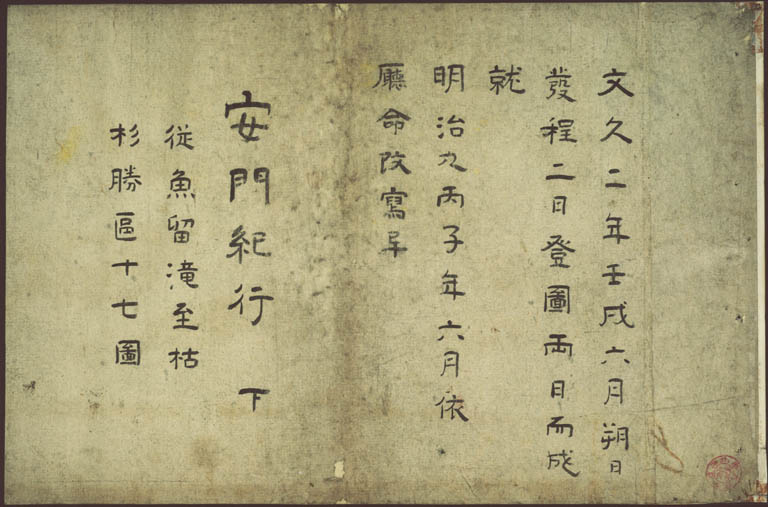 文久二年壬戌六月朔日
發程二日登圖両日而成
就
明治九丙子年六月依
廳命改寫
安門紀行 下
従魚留滝至枯
杉勝區十七圖